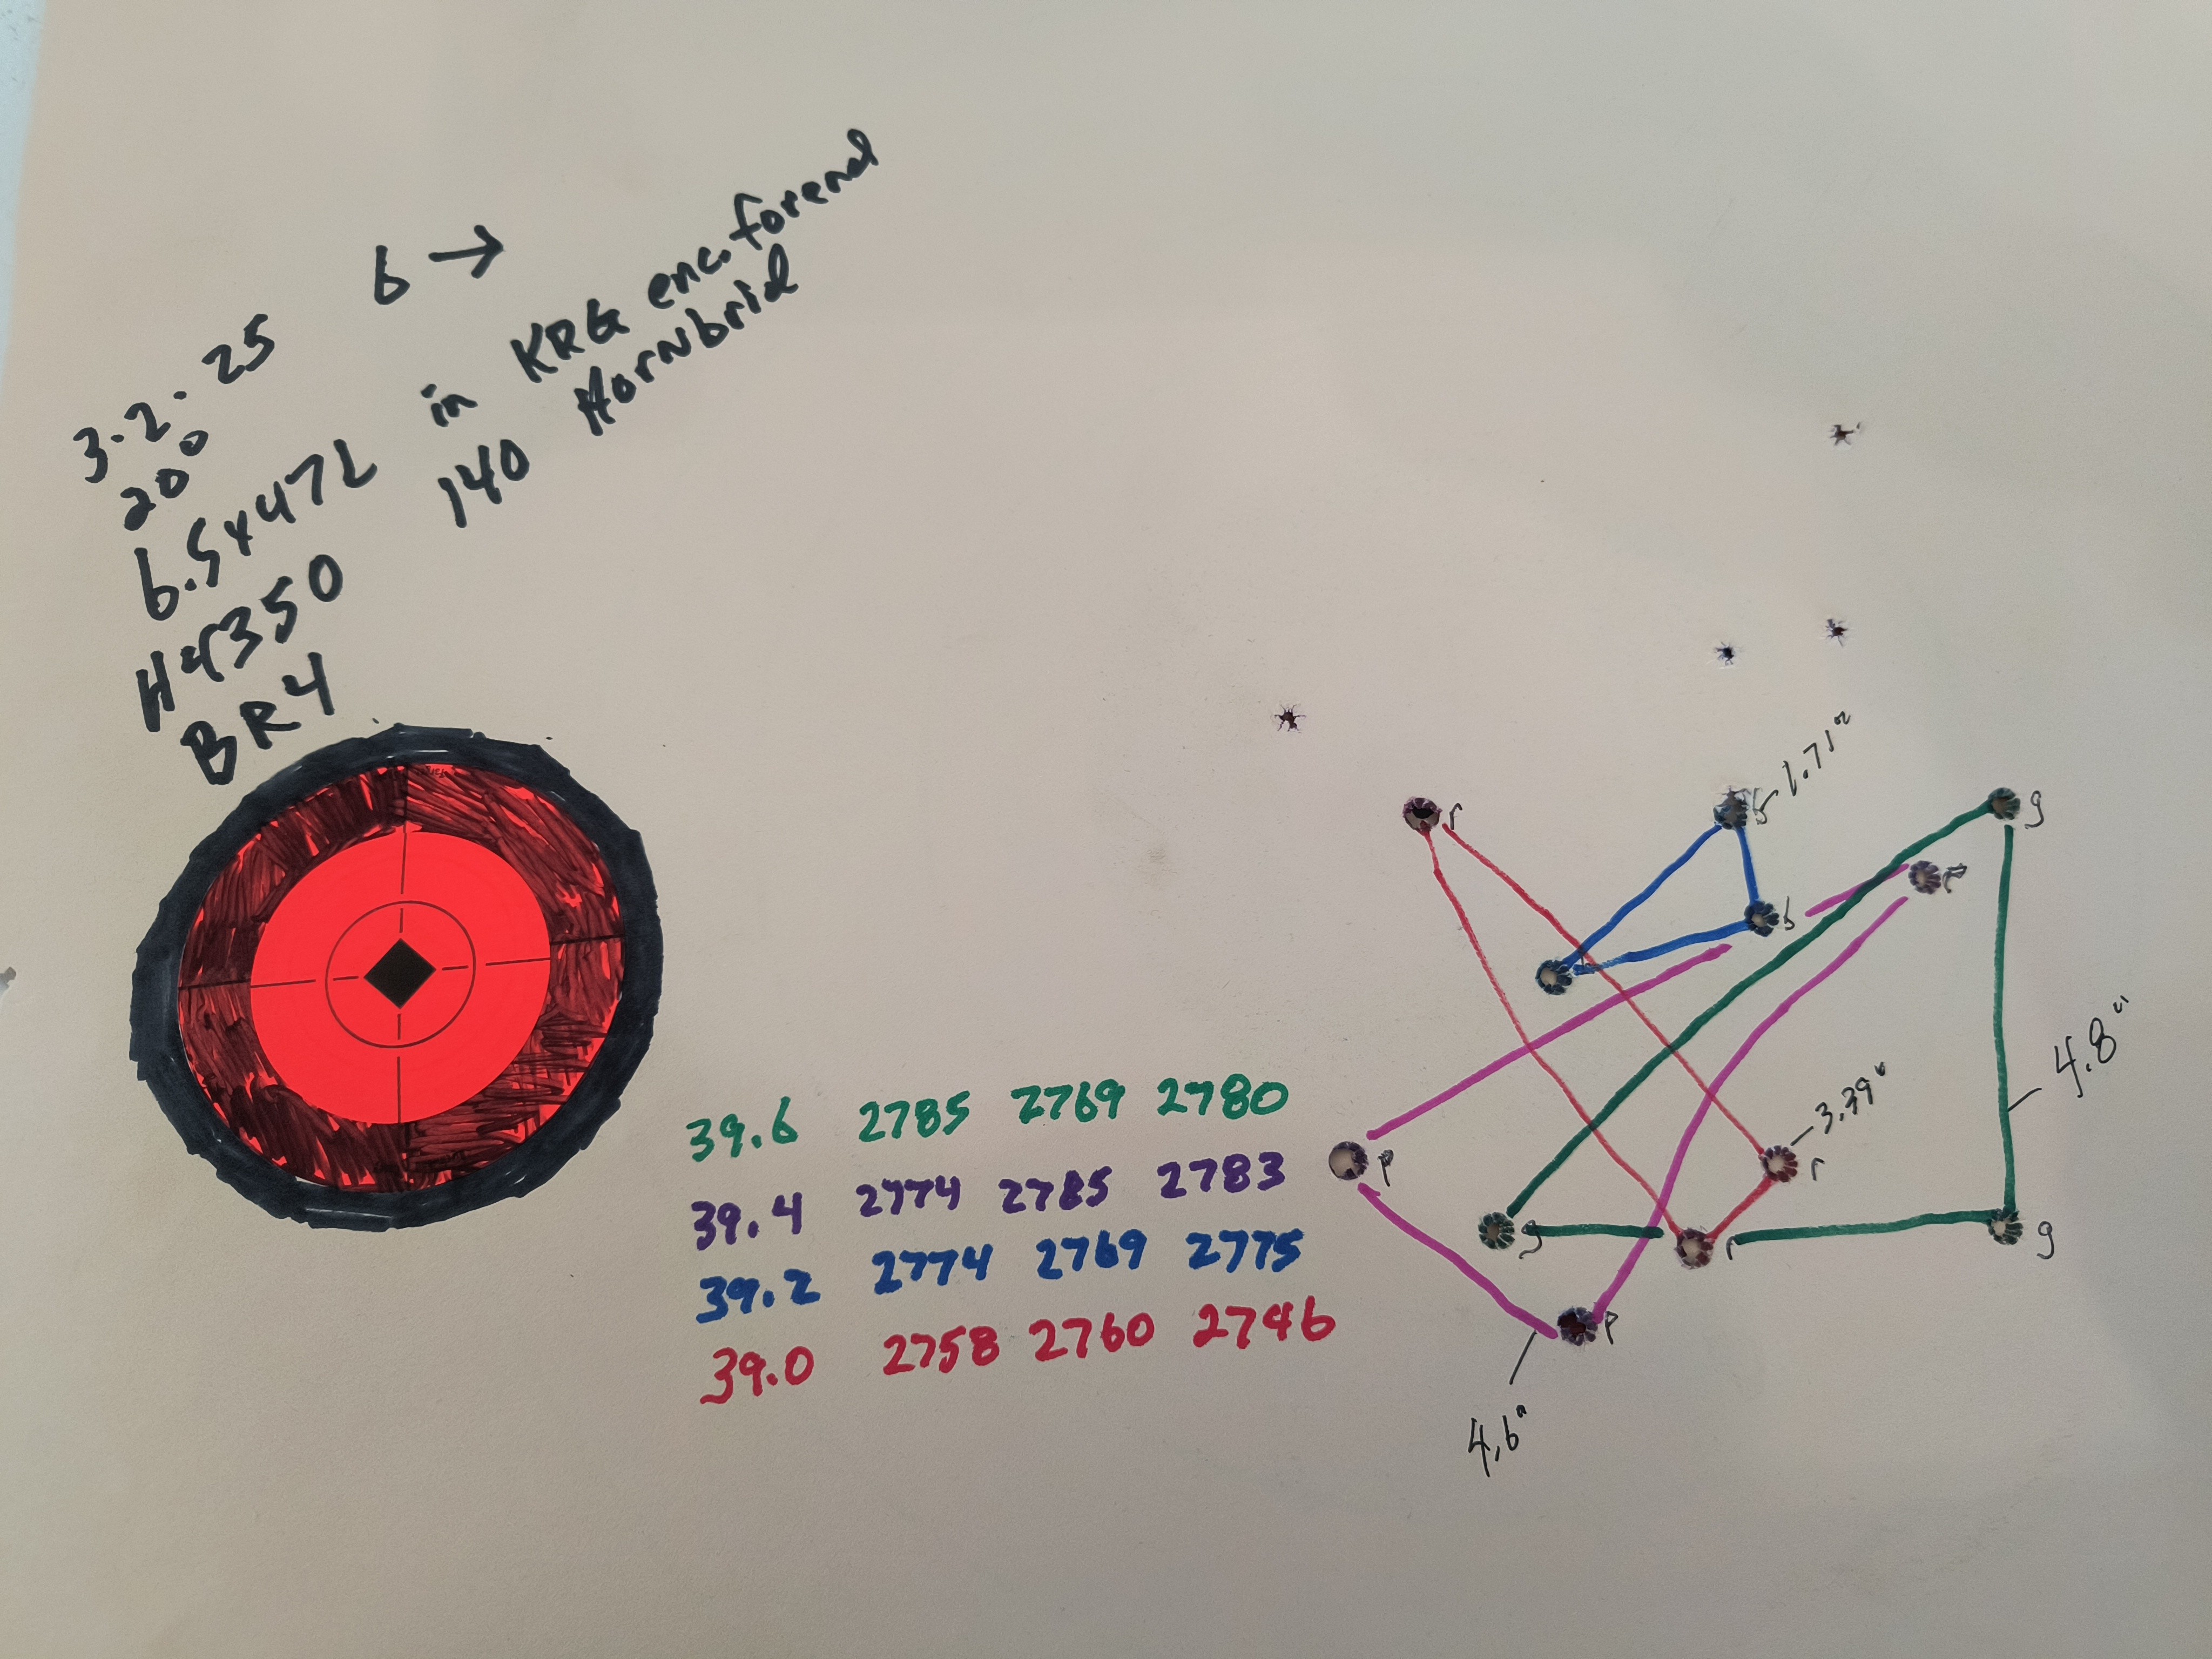 6 →
3.2.25
20°
6.5x47L in KRG enc. forend
H4350 140 Hornbrid
BR4
39.6 2785 2769 2780
39.4 2774 2785 2783
39.2 2774 2769 2775
39.0 2758 2760 2746
r
b 1.71"
g
P
b
b
4.8"
r 3.39"
P
g
r
g
P
4.6"